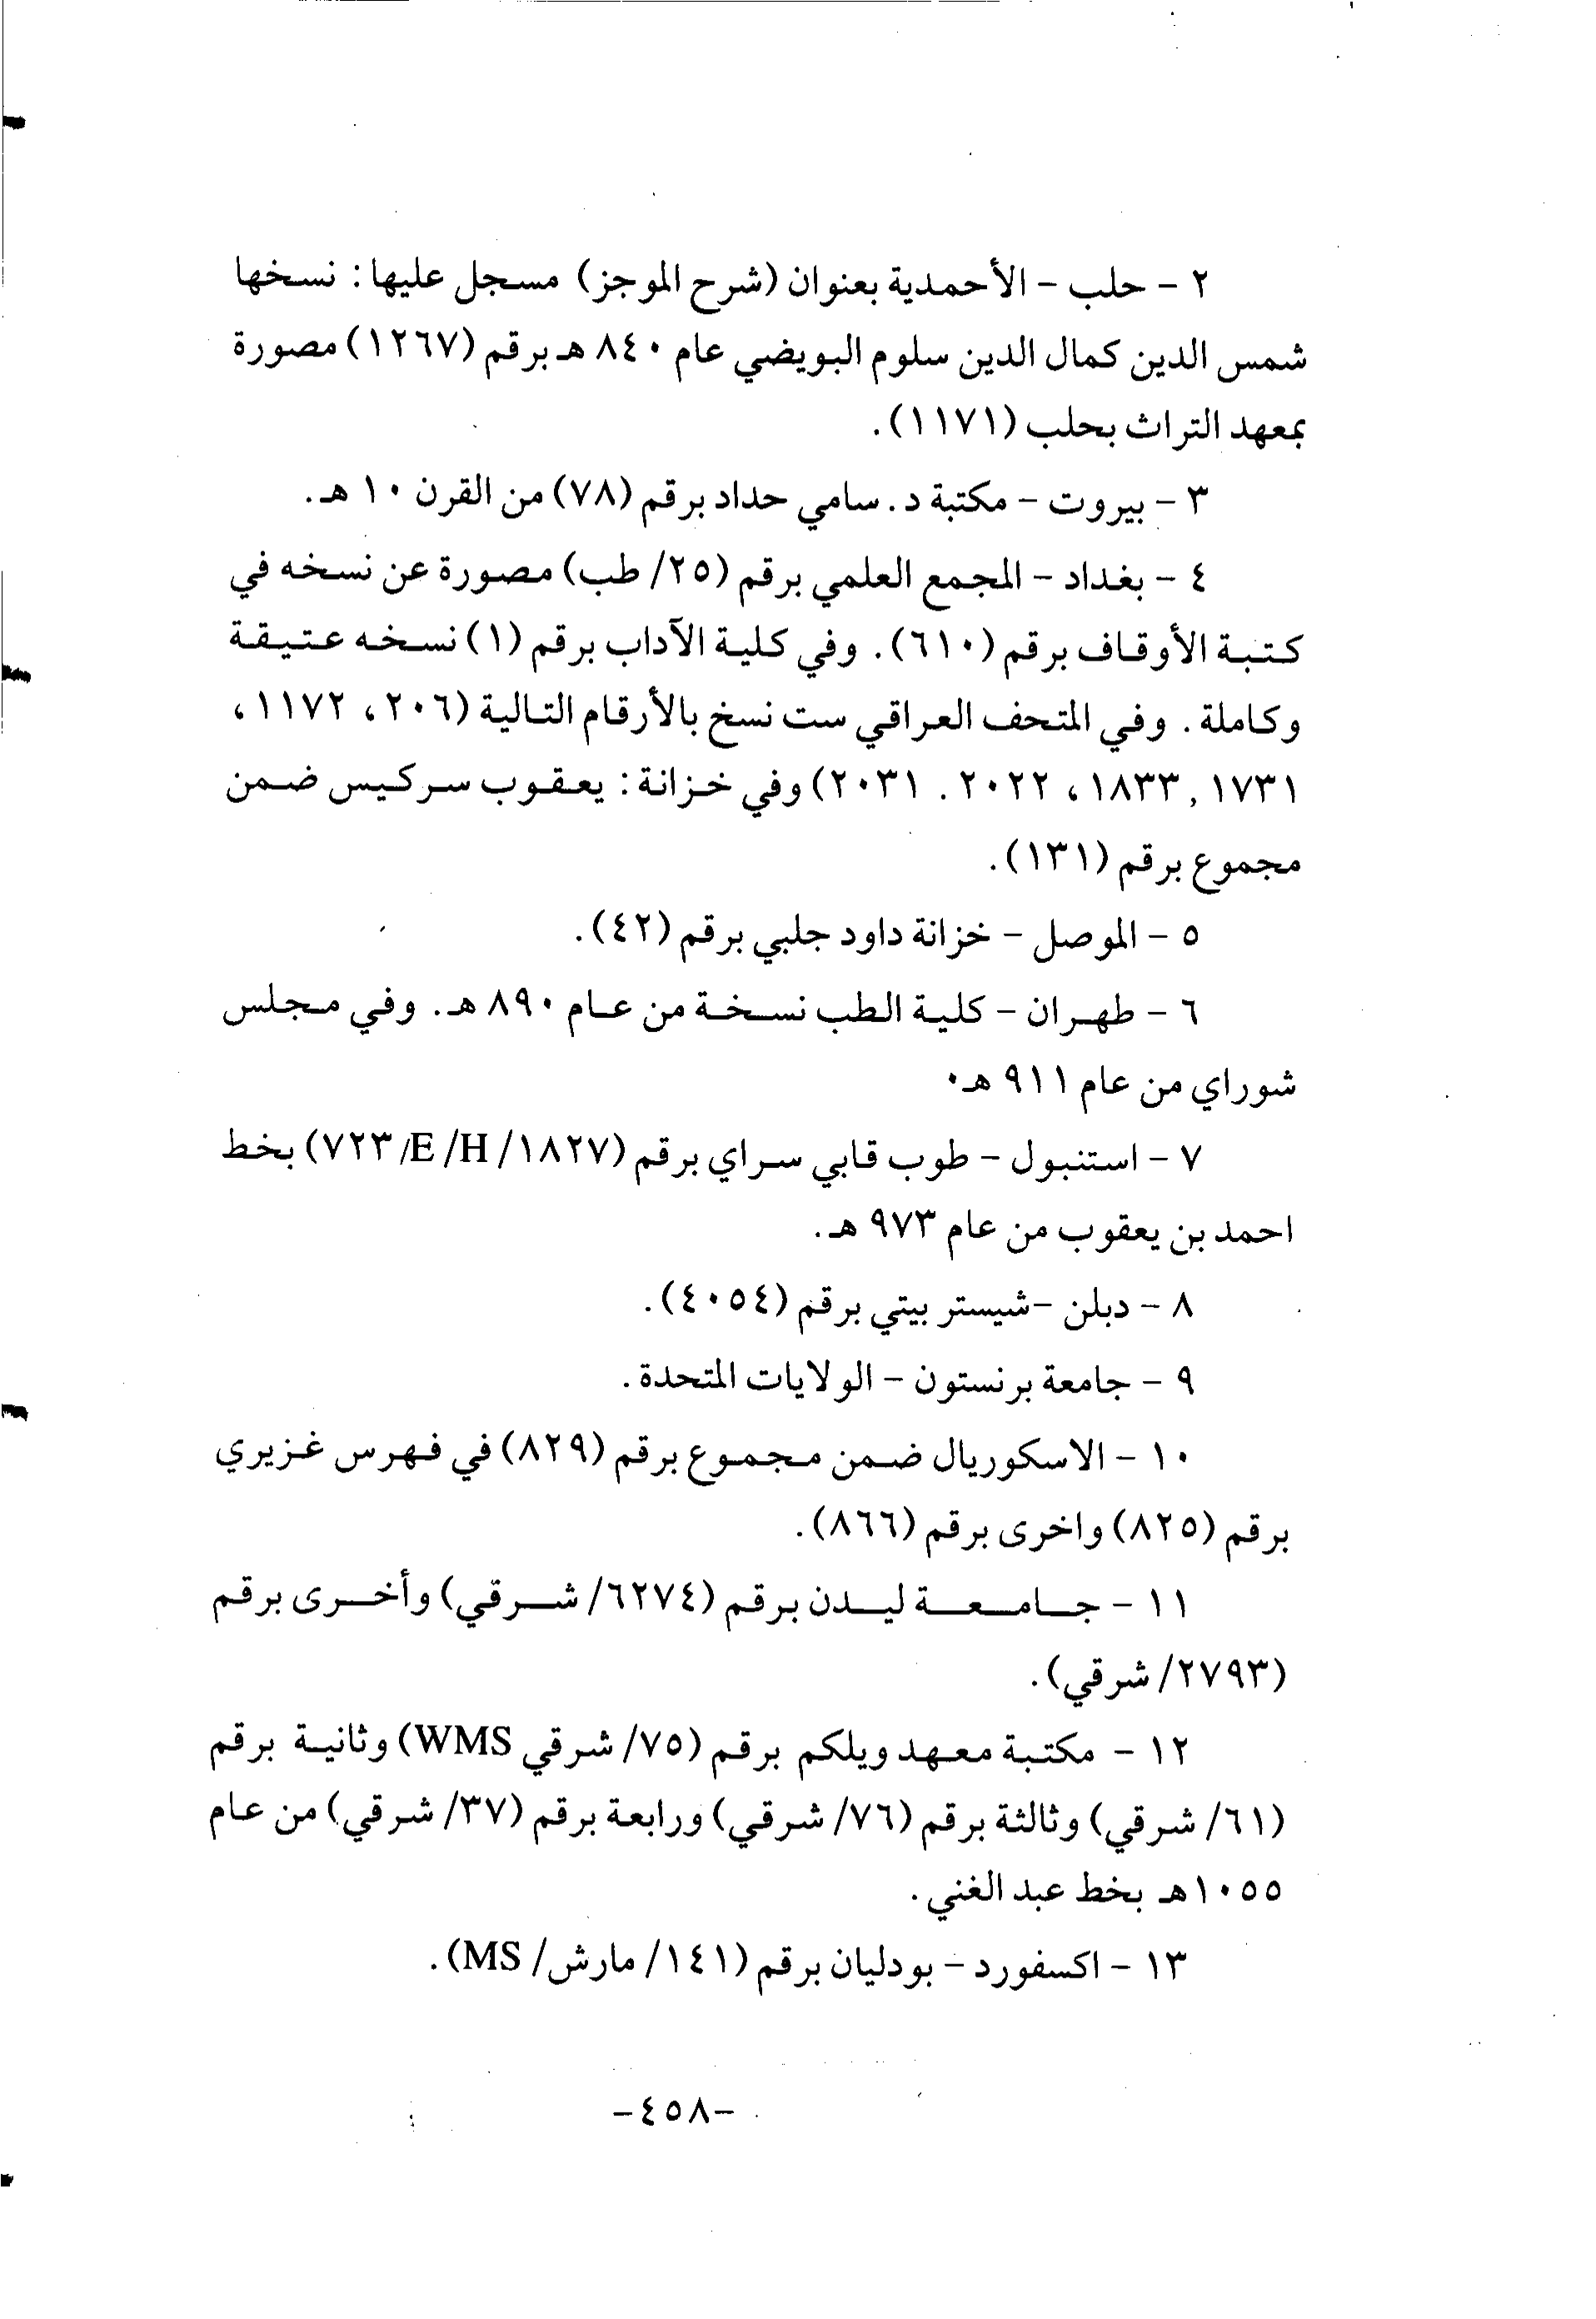 ٢ - حلب - الأحمدية بعنوان (شرح الموجز) مسجل عليها: نسخها
شمس الدين كمال الدين سلوم البويضي عام ٨٤٠ هـ برقم (١٢٦٧) مصورة
بمعهد التراث بحلب (١١٧١).
٣ - بيروت - مكتبة د. سامي حداد برقم (٧٨) من القرن ١٠ هـ.
٤ - بغداد - المجمع العلمي برقم (٢٥/ طب) مصورة عن نسخه في
كتبة الأوقاف برقم (٦١٠). وفي كلية الآداب برقم (١) نسخه عتيقة
وكاملة. وفي المتحف العراقي ست نسخ بالأرقام التالية (٢٠٦، ١١٧٢،
١٧٣١ , ١٨٣٣، ٢٠٢٢ . ٢٠٣١) وفي خزانة: يعقوب سركيس ضمن
مجموع برقم (١٣١).
٥ - الموصل - خزانة داود جلبي برقم (٤٢).
٦ - طهران - كلية الطب نسخة من عام ٨٩٠ هـ. وفي مجلس
شوراي من عام ٩١١ هـ٠
٧ - استنبول - طوب قابي سراي برقم (١٨٢٧/ E/ H/ ٧٢٣) بخط
احمد بن يعقوب من عام ٩٧٣ هـ.
٨ - دبلن -شيستر بيتي برقم (٤٠٥٤).
٩ - جامعة برنستون - الولايات المتحدة.
١٠ - الاسكوريال ضمن مجموع برقم (٨٢٩) في فهرس غزيري
برقم (٨٢٥) واخرى برقم (٨٦٦).
١١ - جامعة ليدن برقم (٦٢٧٤/ شرقي) وأخرى برقم
(٢٧٩٣/ شرقي).
١٢ - مكتبة معهد ويلكم برقم (٧٥/ شرقي WMS) وثانية برقم
(٦١/ شرقي) وثالثة برقم (٧٦/ شرقي) ورابعة برقم (٣٧/ شرقي) من عام
١٠٥٥هـ بخط عبد الغني.
١٣ - اكسفورد - بودليان برقم (١٤١/ مارش/ MS).
-٤٥٨-